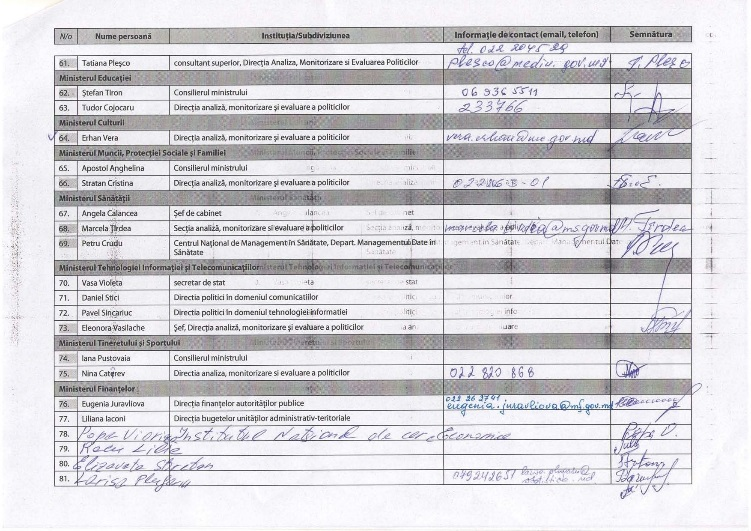 N/o Nume persoană Instituția/Subdiviziunea Informație de contact (email, telefon) Semnătura
61. Tatiana Pleșco consultant superior, Direcția Analiza, Monitorizare si Evaluarea Politicilor plesco@mediu.gov.md
Ministerul Educației
62. Ștefan Tiron Consilierul ministrului 06 936 5511
63. Tudor Cojocaru Direcția analiză, monitorizare și evaluare a politicilor 233766
Ministerul Culturii
64. Erhan Vera Direcția analiză, monitorizare și evaluare a politicilor
Ministerul Muncii, Protecției Sociale și Familiei
65. Apostol Anghelina Consilierul ministrului
66. Stratan Cristina Direcția analiză, monitorizare și evaluare a politicilor
Ministerul Sănătății
67. Angela Calancea Șef de cabinet
68. Marcela Țîrdea Secția analiză, monitorizare si evaluare a politicilor
69. Petru Crudu Centrul Național de Management în Sănătate, Depart. Managementul Date în
Sănătate
Ministerul Tehnologiei Informației și Telecomunicațiilor
70. Vasa Violeta secretar de stat
71. Daniel Stici Directia politici în domeniul comunicatiilor
72. Pavel Sincariuc Directia politici în domeniul tehnologiei informatiei
73. Eleonora Vasilache Șef, Direcția analiză, monitorizare și evaluare a politicilor
Ministerul Tineretului și Sportului
74. Iana Pustovaia Consilierul ministrului
75. Nina Caterev Directia analiza, monitorizare și evaluare a politicilor 022 820 868
Ministerul Finanțelor
022 26 27 41
76. Eugenia Juravliova Direcția finanțelor autorităților publice eugenia.juravliova@mf.gov.md
77. Liliana Iaconi Direcția bugetelor unităților administrativ-teritoriale
78. Popa Viorica Institutul Național de cer. Economice
79.
80. Elizaveta
81. Larisa 079242651